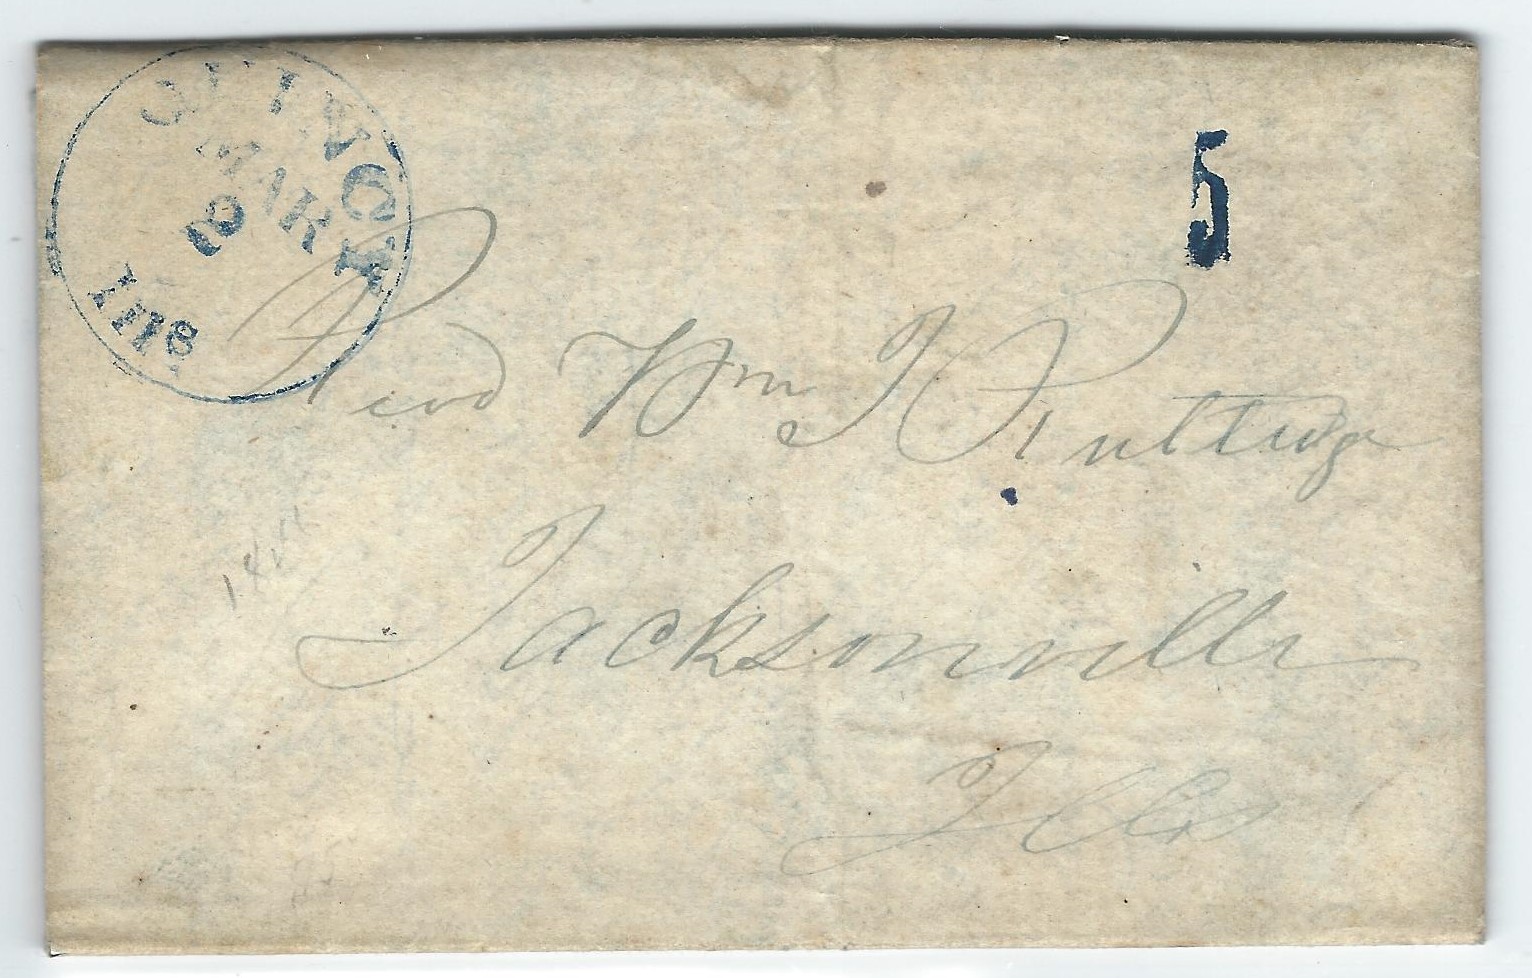 QUINCY
MAR
2
Ills
5
Revd Wm J Rutledge
Jacksonville
Ills